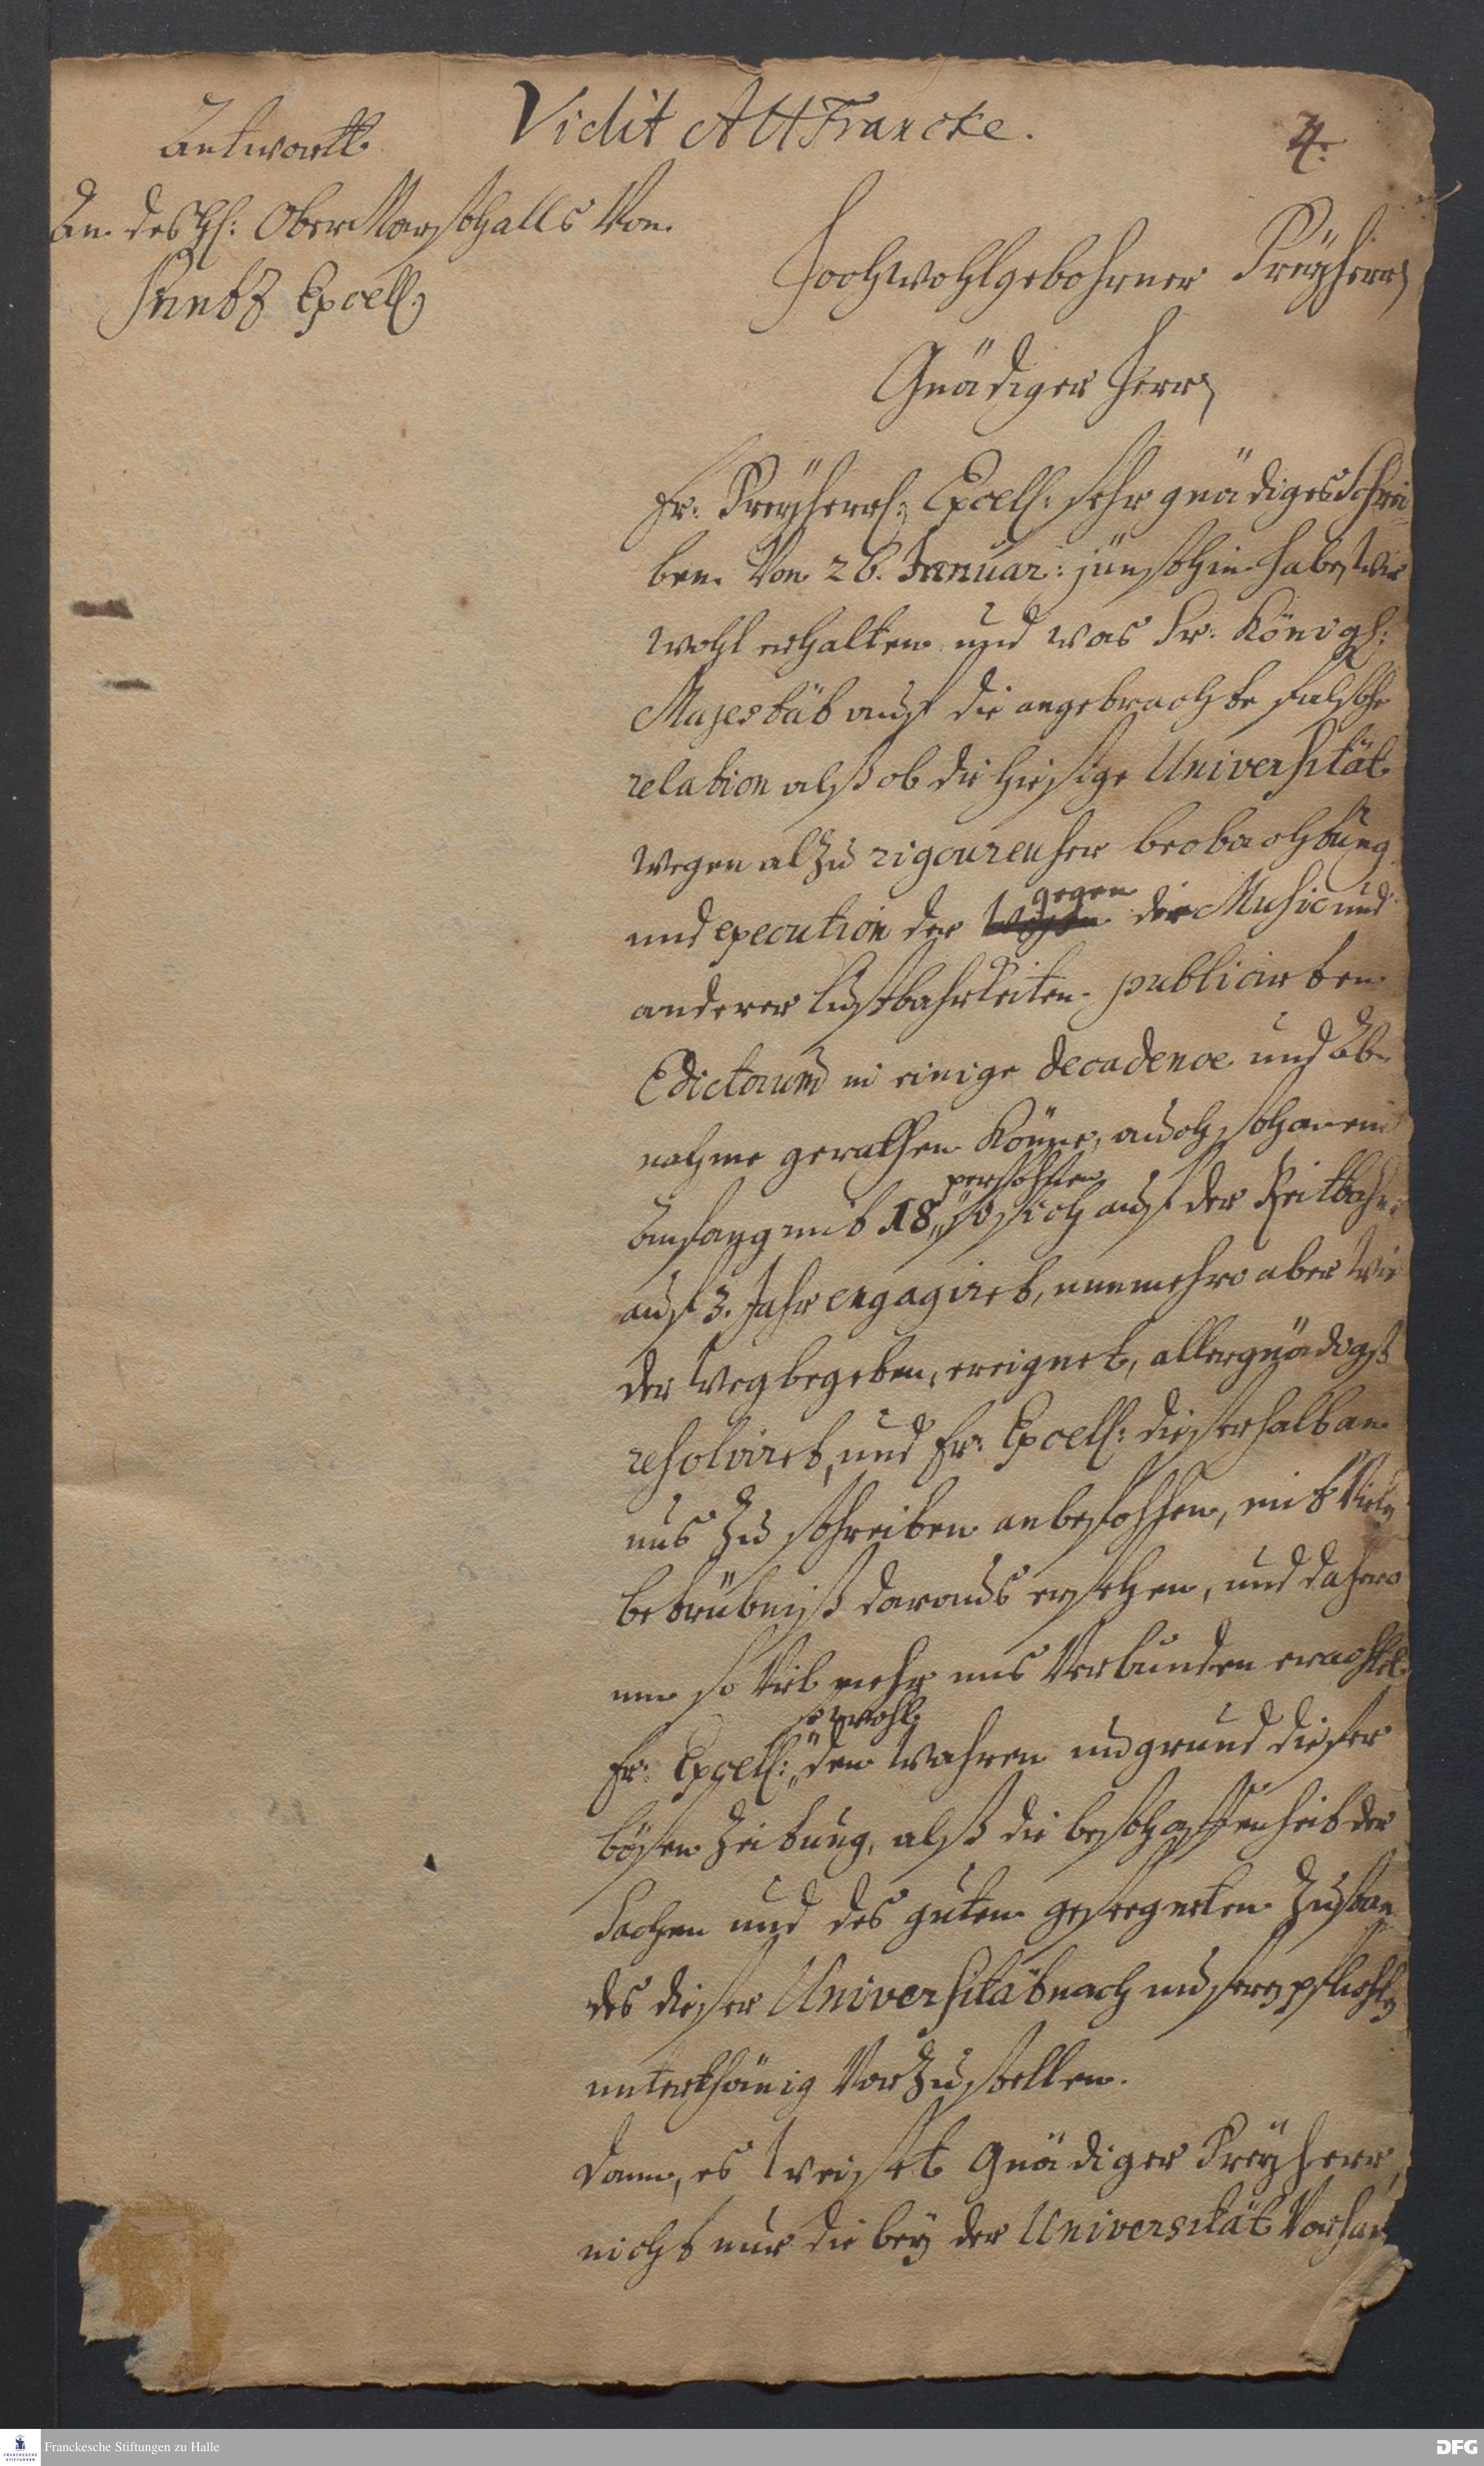 Vidit AHFrancke.
4.
Antwortt.
An des H: OberMarschalls Von
Printz Excell:
Hochwohlgebohrner Freyherr
Gnädiger Herr
Ew: Freyherrl: Excell: sehr gnädiges Schrei-
ben Von 26. Januar: jünsthin haben wir
wohl erhalten und was Sr. Königl:
Majestät auf die angebrachte falsche
relation alß ob die hiesige Universität
wegen alzu rigoureuser beobachtung
und execution der gegen die Music und
anderer Lustbahrkeiten publicirten
Edictorum in einige decadence und Ab-
nahme gerathen könne, auch schon ein
Anfang mit 18 persohnen so sich auf der Reitbahn
auf 3. Jahr engagiret, nunmehro aber wie
der wegbegeben, ereignet, allergnädigst
resolviret, und Ew: Excell: dieserhalb an
uns zu schreiben anbefohlen, mit Vieler
betrübniß daraus ersehen, und dahero
um so Viel mehr uns Verbunden erachtet
Ew: Excell: so wohl den wahren ungrund dieser
bösen Zeitung, alß die beschaffenheit der
Sachen und des guten gesegneten Zustan
des dieser Universität nach unsern pflichten
unterthänig Vorzustellen.
Dann, es weiset Gnädiger Freyherr,
nicht nur die bey der Universität Vorhan
Franckesche Stiftungen zu Halle
DFG